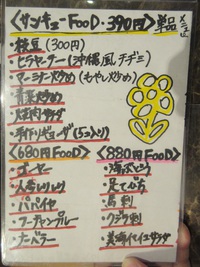 <サンキューFOOD・390円>単品メニュー
・枝豆(300円)
・ヒラヤーチー(沖縄風チヂミ)
・マーミナー炒め(もやし炒め)
・青菜炒め
・焼肉サラダ
・手作りギョーザ(5コ入り)
<680円FOOD>
・ゴーヤー
・人参シリシリ
・パパイヤ
・フーチャンプルー
・ナーベラー
<880円FOOD>
・海ぶどう
・足てびち
・馬刺
・クジラ刺